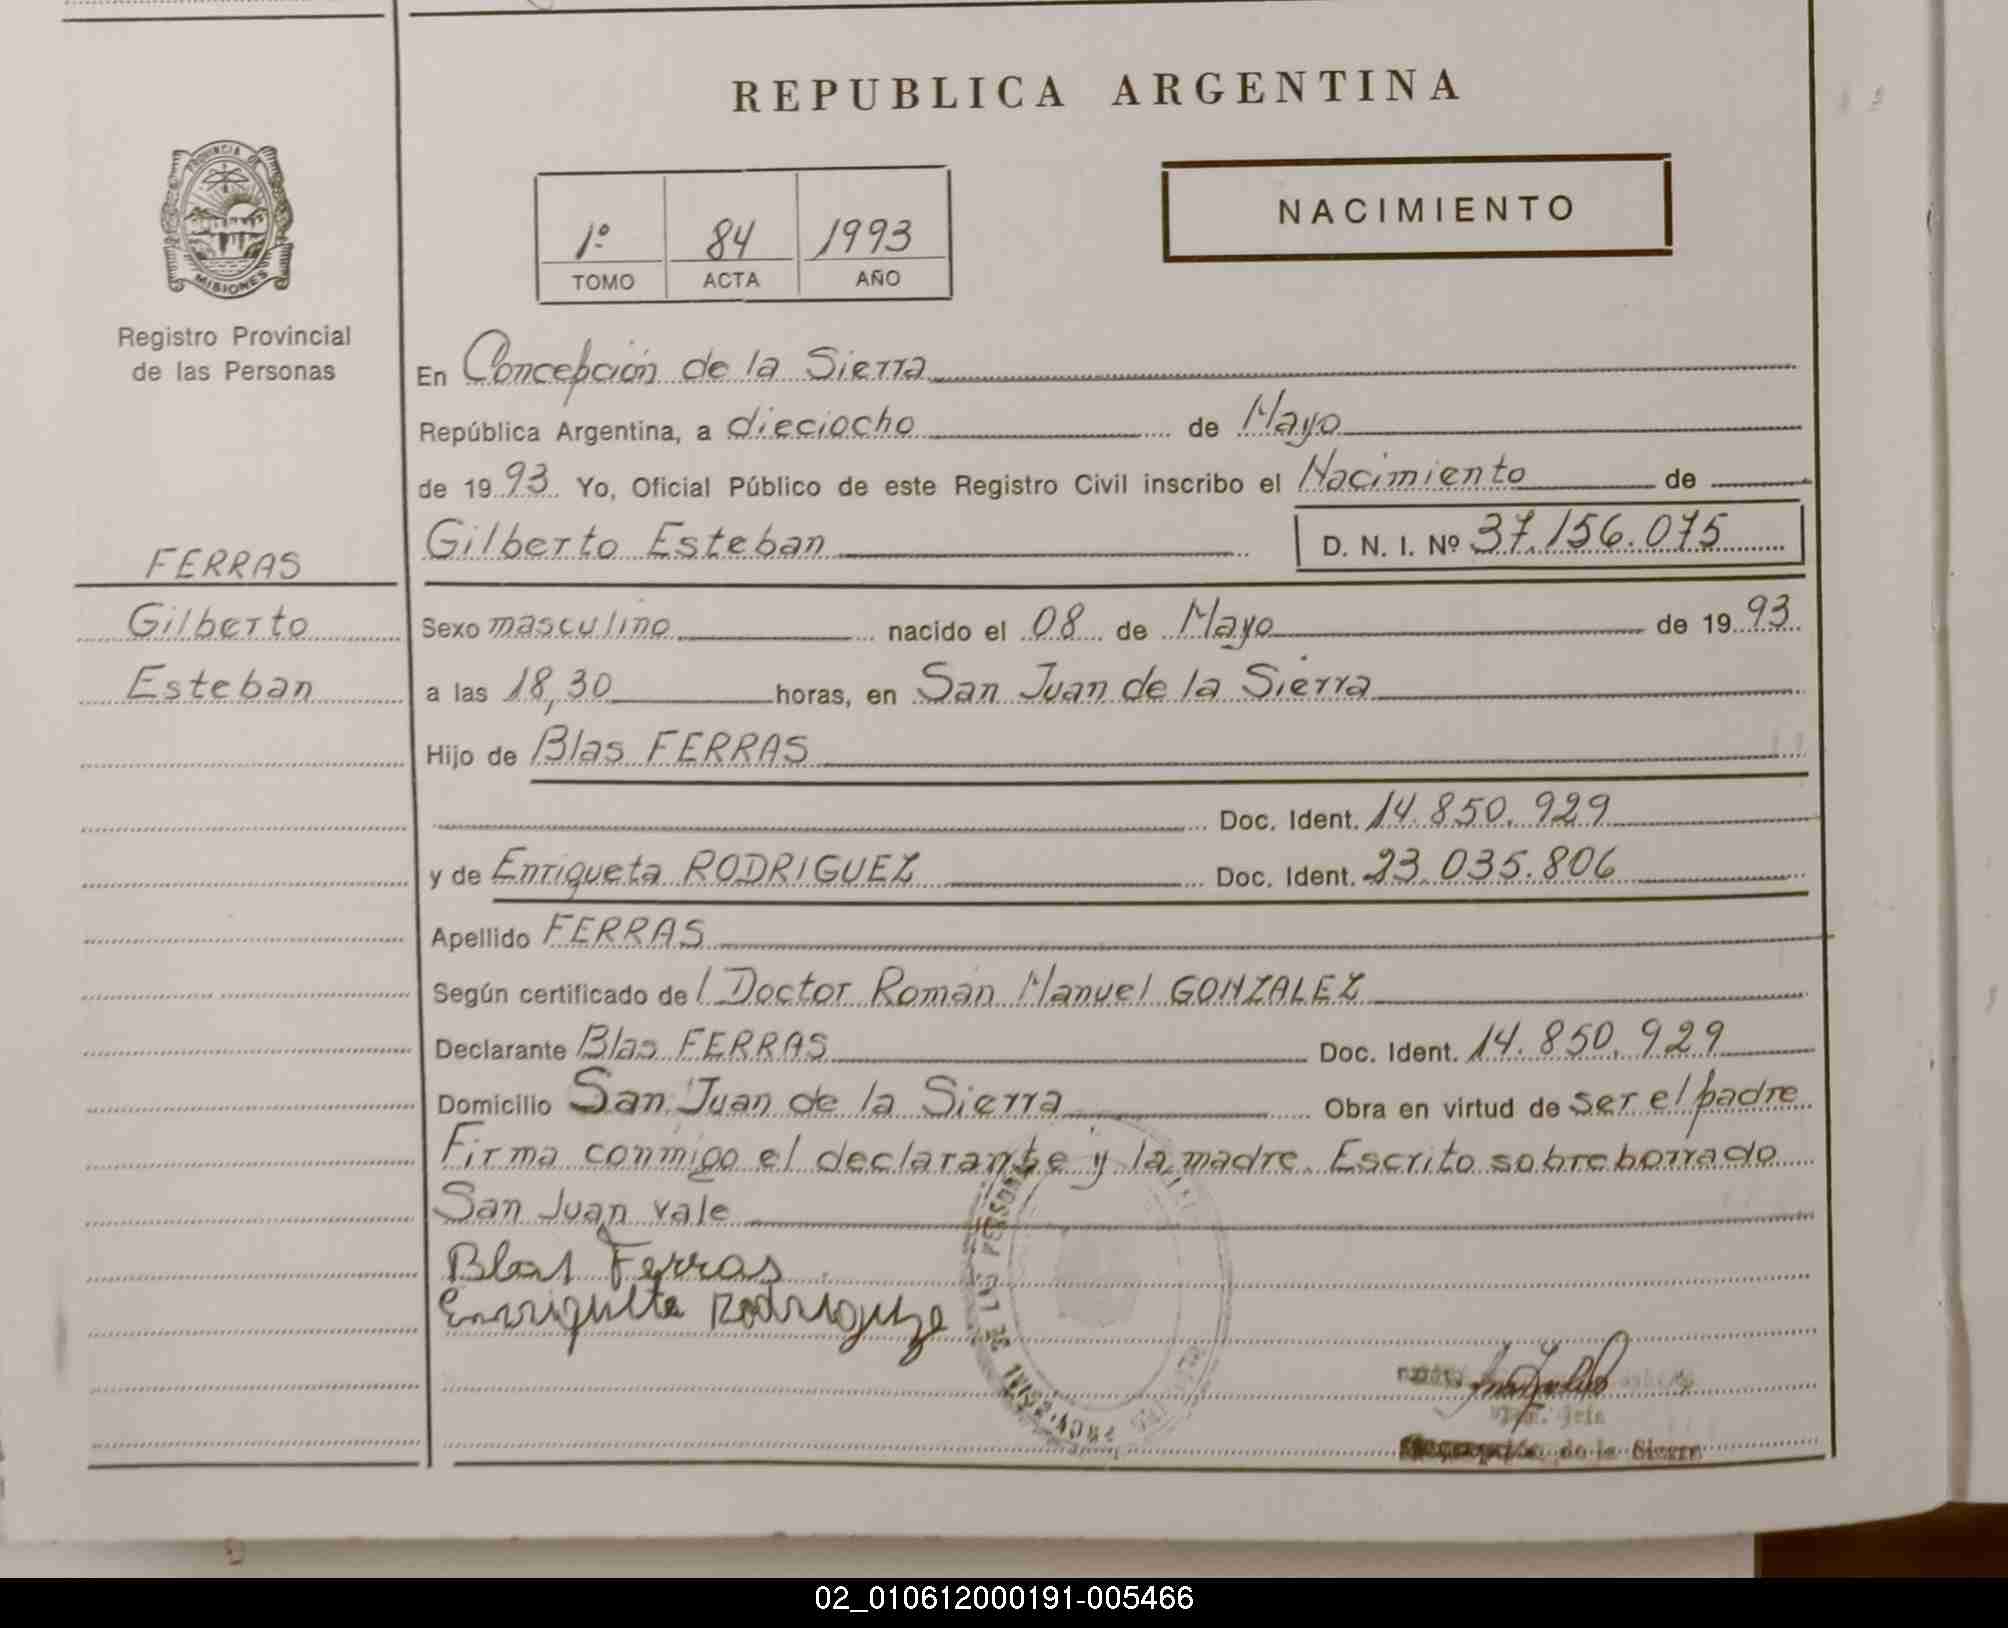 REPUBLICA ARGENTINA
PROVINCIA DE
MISIONES
Registro Provincial
de las Personas
1º 84 1993
TOMO ACTA AÑO
NACIMIENTO
En Concepción de la Sierra
República Argentina, a dieciocho de Mayo
de 19 93 Yo, Oficial Público de este Registro Civil inscribo el Nacimiento de
Gilberto Esteban D. N. I. Nº 37.156.075
FERRAS
Gilberto
Esteban
Sexo masculino nacido el 08 de Mayo de 19 93
a las 18,30 horas, en San Juan de la Sierra
Hijo de Blas FERRAS
Doc. Ident. 14.850.929
y de Enriqueta RODRIGUEZ Doc. Ident. 23.035.806
Apellido FERRAS
Según certificado de l Doctor Román Manuel GONZALEZ
Declarante Blas FERRAS Doc. Ident. 14.850.929
Domicilio San Juan de la Sierra Obra en virtud de ser el padre
Firma conmigo el declarante y la madre. Escrito sobreborrado
San Juan vale
Blas Ferras
Enriqueta Rodriguze
de la Sierra
02_010612000191-005466